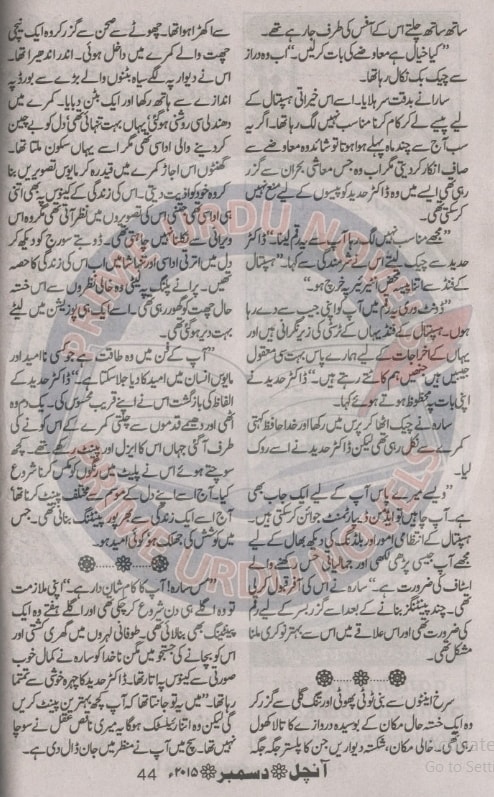 ساتھ ساتھ چلتے اس کے آفس کی طرف جا رہے تھے۔
”کیا خیال ہے معاوضے کی بات کر لیں۔“ اب وہ دراز
سے چیک بک نکال رہا تھا۔
سارا نے بدقت سر ہلایا۔ اسے اس خیراتی ہسپتال کے
لیے پیسے لے کر کام کرنا مناسب نہیں لگ رہا تھا۔ اگر یہ
سب آج سے چند ماہ پہلے ہوا ہوتا تو شاید وہ معاوضے سے
صاف انکار کر دیتی مگر اب وہ جس معاشی بحران سے گزر
رہی تھی ایسے میں وہ ڈاکٹر حدید کو پیسوں کے لیے منع نہیں
کر سکتی تھی۔
”مجھے مناسب نہیں لگ رہا آپ سے یہ رقم لینا۔“ ڈاکٹر
حدید سے چیک لیتے اس نے شرمندگی سے کہا۔ ”ہسپتال
کے فنڈ سے اتنا پیسہ تو خرچ ہو۔“
”ڈونٹ وری یہ رقم میں آپ کو اپنی جیب سے دے رہا
ہوں۔ ہسپتال کے فنڈز یہاں کے ٹرسٹی کی زیر نگرانی ہیں اور
یہاں کے اخراجات کے لیے ہمارے پاس بہت سی معقول
جیبیں ہیں جنھیں ہم کاٹتے رہتے ہیں۔“ ڈاکٹر حدید نے
اپنی بات پر محظوظ ہوتے ہوئے کہا۔
سارہ نے چیک اٹھا کر پرس میں رکھا اور خدا حافظ کہتی
کمرے سے نکل رہی تھی لیکن ڈاکٹر حدید نے اسے روک
لیا۔
”ویسے میرے پاس آپ کے لیے ایک جاب بھی
ہے۔ آپ چاہیں تو ایڈمن ڈیپارٹمنٹ جوائن کر سکتی ہیں۔
ہسپتال کے انتظامی امور اور بلڈنگ کی دیکھ بھال کے لیے
مجھے آپ جیسی پڑھی لکھی اور جمالیاتی حس رکھنے والے
اسٹاف کی ضرورت ہے۔“ سارہ نے اس کی آفر قبول کر لی
تھی۔ چند پینٹنگز بنانے کے بعد اسے گزر بسر کے لیے رقم
کی ضرورت تھی اور اس علاقے میں اس سے بہتر نوکری ملنا
مشکل تھی۔
سرخ اینٹوں سے بنی ٹوٹی پھوٹی اور تنگ گلی سے گزر کر
وہ ایک خستہ حال مکان کے بوسیدہ دروازے کا تالا کھول
رہی تھی۔ خالی مکان، شکستہ دیواریں جن کا پلستر جگہ جگہ
سے اکھڑا ہوا تھا۔ چھوٹے سے صحن سے گزر کر وہ ایک نیچی
چھت والے کمرے میں داخل ہوئی۔ اندر اندھیرا تھا۔
اس نے دیوار پہ لگے سیاہ بٹنوں والے بڑے سے بورڈ پہ
اندازے سے ہاتھ رکھا اور ایک بٹن دبایا۔ کمرے میں
دھندلی سی روشنی ہو گئی، یہاں بہت تنہائی تھی دل کو بے چین
کر دینے والی اداسی تھی مگر اسے یہاں سکون ملتا تھا۔
گھنٹوں اس اجاڑ کمرے میں قید رہ کر مایوس تصویریں بنا
کر وہ خود کو اذیت دیتی۔ اس کی زندگی کے کینوس پہ بھی اتنی
ہی اداسی تھی جتنی اس کی تصویروں میں نظر آتی تھی مگر وہ اس
ویرانی سے نکلنا نہیں چاہتی تھی۔ ڈوبتے سورج کو دیکھ کر
دل میں اترتی اداسی اور تنہا شامیں اب اس کی زندگی کا حصہ
تھیں۔ پرانے پلنگ پہ لیٹی وہ خالی نظروں سے اس خستہ
حال چھت کو گھور رہی تھی۔ اسے ایک ہی پوزیشن میں لیٹے
بہت دیر ہو گئی تھی۔
”آپ کے فن میں وہ طاقت ہے جو کسی ناامید اور
مایوس انسان میں امید کا دیا جلا سکتا ہے۔“ ڈاکٹر حدید کے
الفاظ کی بازگشت اس نے اپنے قریب محسوس کی۔ یک دم وہ
اٹھی اور دھیمے قدموں سے چلتی کمرے کے اس کونے کی
طرف آ گئی جہاں اس کا ایزل اور پینٹ رکھے تھے۔ کچھ
سوچتے ہوئے اس نے پلیٹ میں رنگوں کو مکس کرنا شروع
کیا۔ آج اسے اپنے دل کے موسم سے مختلف پینٹ کرنا تھا
آج اسے ایک زندگی سے بھرپور پینٹنگ بنانی تھی۔ جس
میں کوشش کی جھلک ہو کوئی امید ہو۔
”مس سارہ! آپ کا کام شاندار ہے۔“ اپنی ملازمت
تو وہ اگلے ہی دن شروع کر چکی تھی اور اگلے ہفتے وہ ایک
پینٹنگ بھی بنا لائی تھی۔ طوفانی لہروں میں گھری کشتی اور
اس کو بچانے کی جستجو میں مگن ناخدا کو سارہ نے کمال خوب
صورتی سے کینوس پہ اتارا تھا۔ ڈاکٹر حدید کا چہرہ خوشی سے تمتما
رہا تھا۔ ”میں یہ تو جانتا تھا کہ آپ کچھ بہترین پینٹ کریں
گی لیکن وہ اتنا ریئلسٹک ہو گا یہ میری ناقص عقل نے سوچا
نہیں تھا۔ سچ میں آپ نے منظر میں جان ڈال دی ہے۔
آنچل دسمبر ۲۰۱۵ء 44
PRIME URDU NOVELS
PRIME URDU NOVELS
Go to Sett